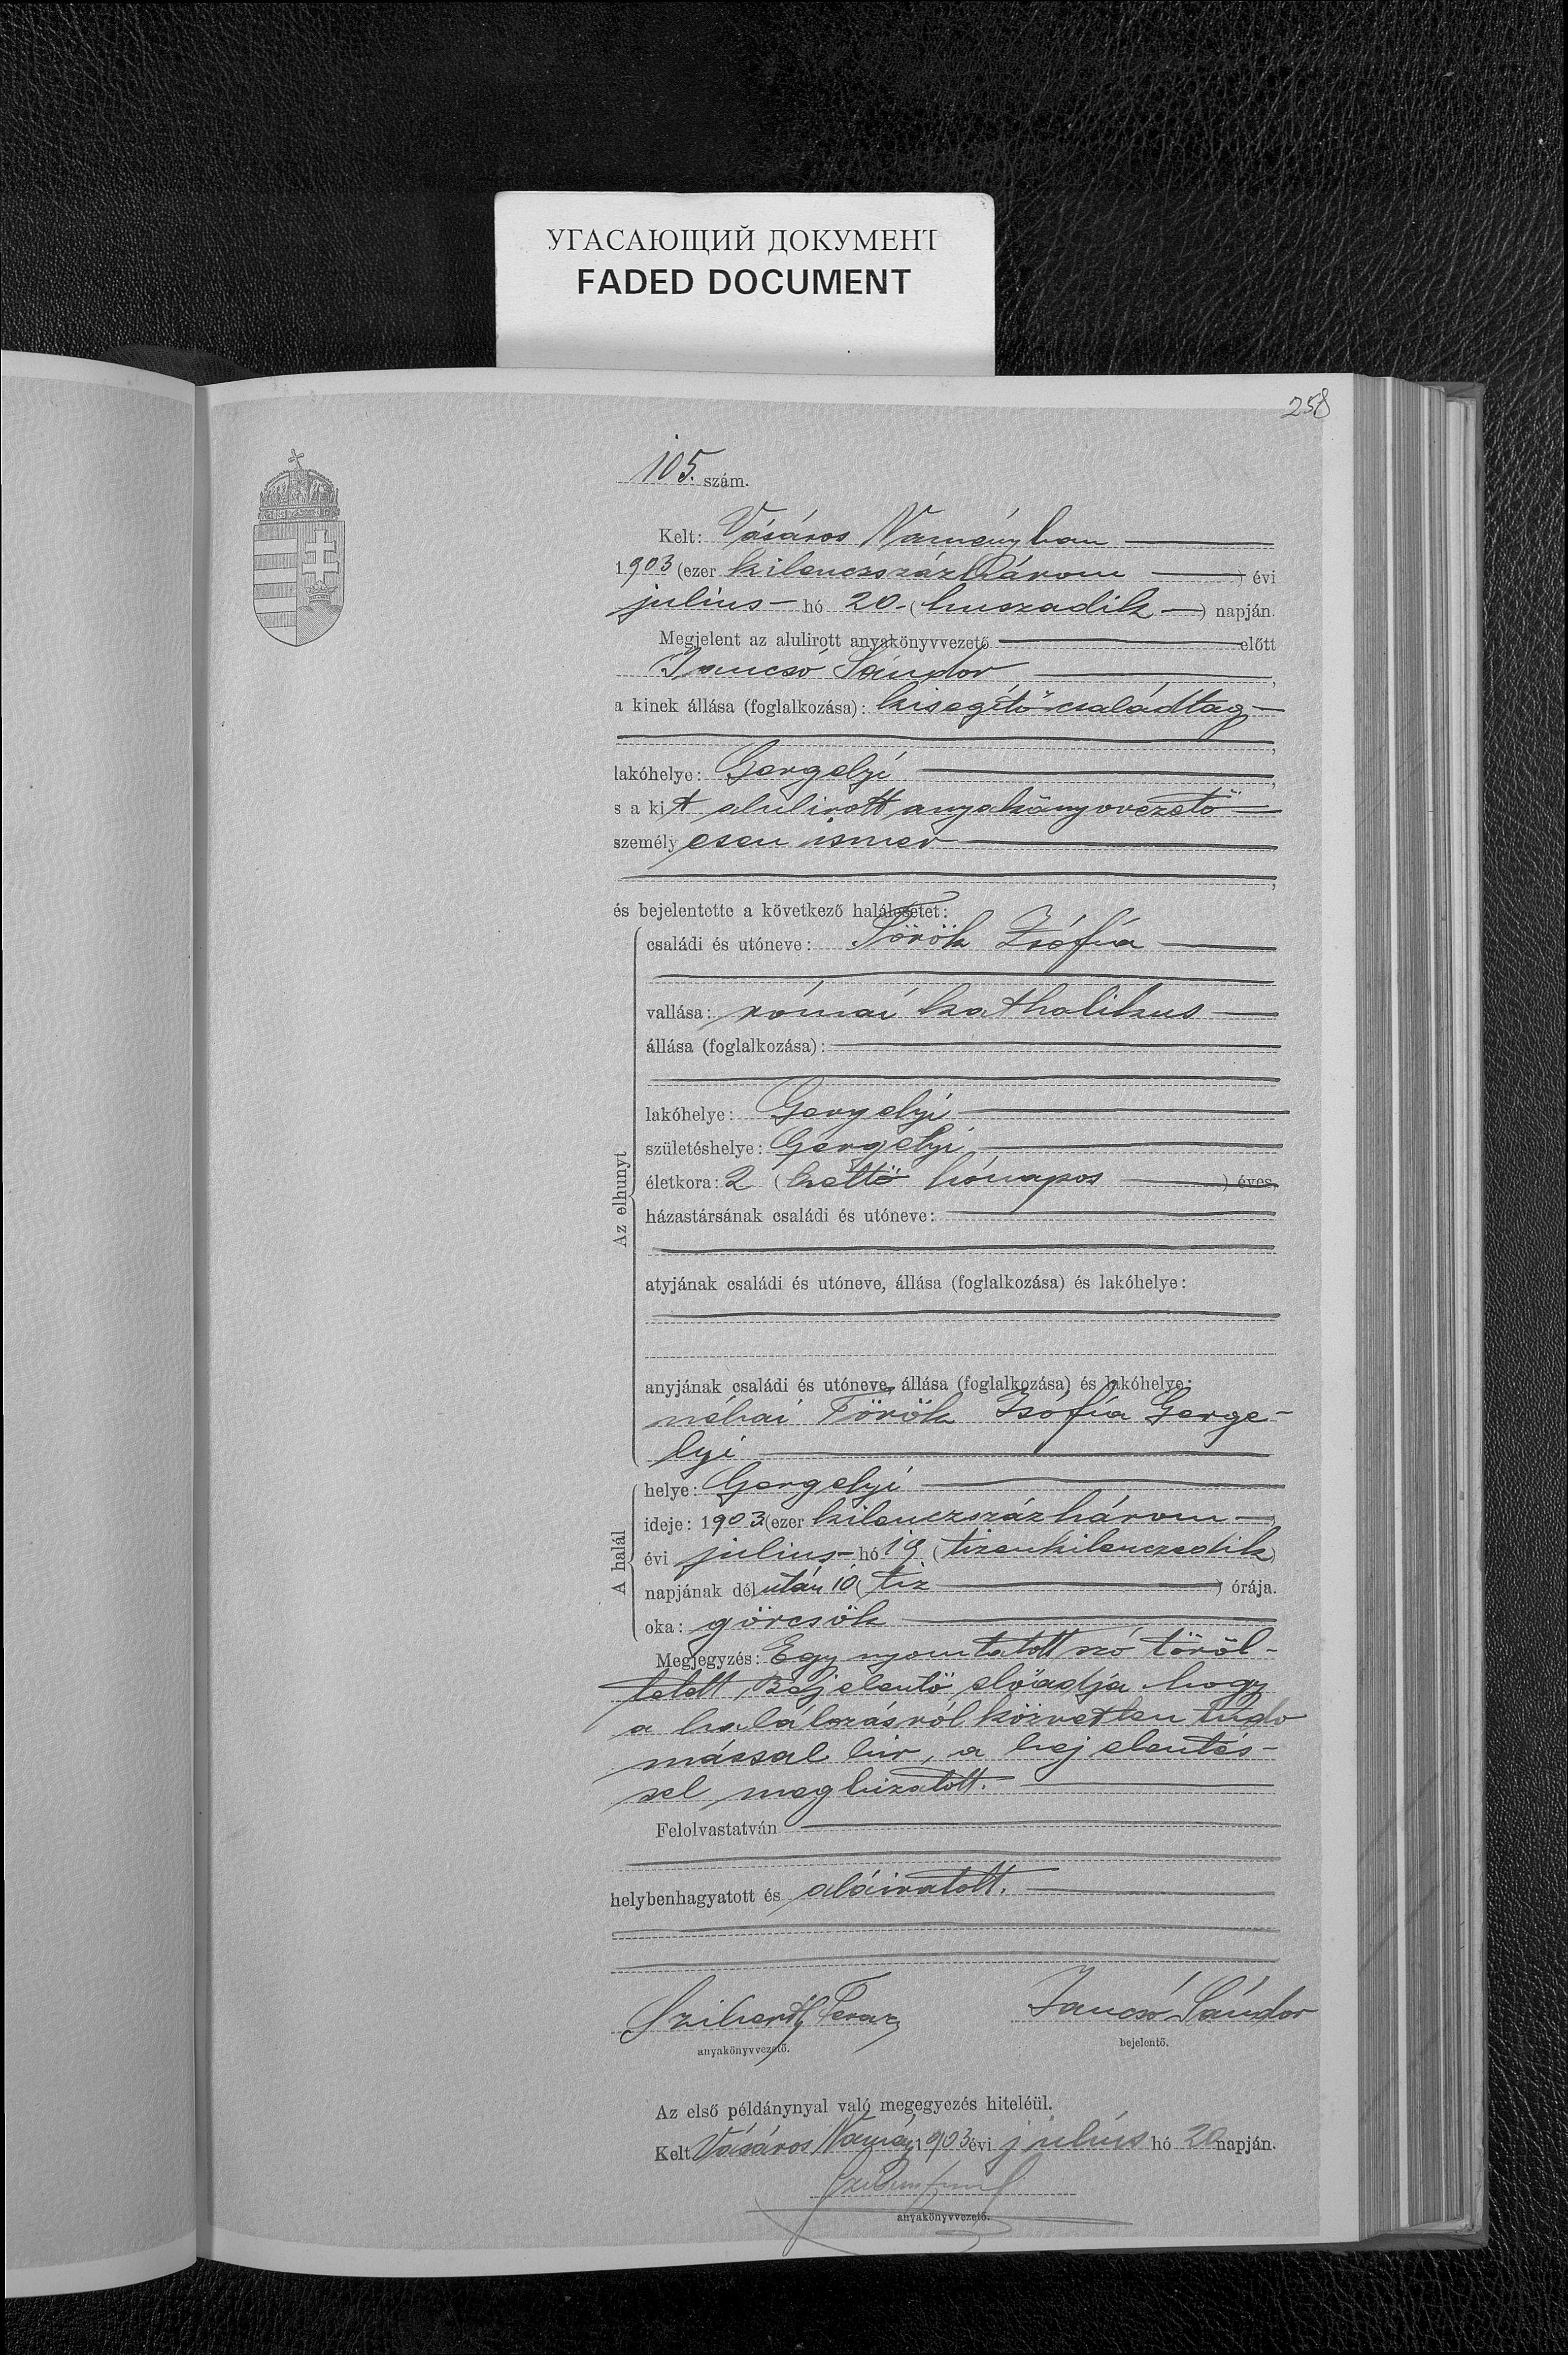 УГАСАЮЩИЙ ДОКУМЕНТ
FADED DOCUMENT
258
105. szám.
Kelt: Vásáros Naményban
1903 (ezer kilenczszázhárom ) évi
julius hó 20 (huszadik ) napján.
Megjelent az alulirott anyakönyvvezető előtt
Jancsó Sándor ,
a kinek állása (foglalkozása): kisegítő családtag
,
lakóhelye: Gergelyi ,
s a kit alulirott anyakönyvvezető
személyesen ismer
,
és bejelentette a következő halálesetet:
Az elhunyt
családi és utóneve: Török Zsófia
vallása: római katholikus
állása (foglalkozása):
lakóhelye: Gergelyi
születéshelye: Gergelyi
életkora: 2 (kettő hónapos ) éves,
házastársának családi és utóneve:
atyjának családi és utóneve, állása (foglalkozása) és lakóhelye:
anyjának családi és utóneve, állása (foglalkozása) és lakóhelye:
néhai Török Zsófia Gerge-
lyi
A halál
helye: Gergelyi
ideje: 1903 (ezer kilenczszázhárom )
évi julius hó 19 (tizenkilenczedik)
napjának délután 10 (tiz ) órája.
oka: görcsök
Megjegyzés: Egy nyomtatott szó töröl-
tetett, Bejelentő előadja hogy
a halálozásról közvetlen tudo
mással bir, a bejelentés-
sel megbizatott.
Felolvastatván
helybenhagyatott és aláiratott.
Ferencz Jancsó Sándor
anyakönyvvezető. bejelentő.
Az első példánynyal való megegyezés hiteléül.
Kelt Vásáros Namény 1903 évi julius hó 20 napján.
anyakönyvvezető.